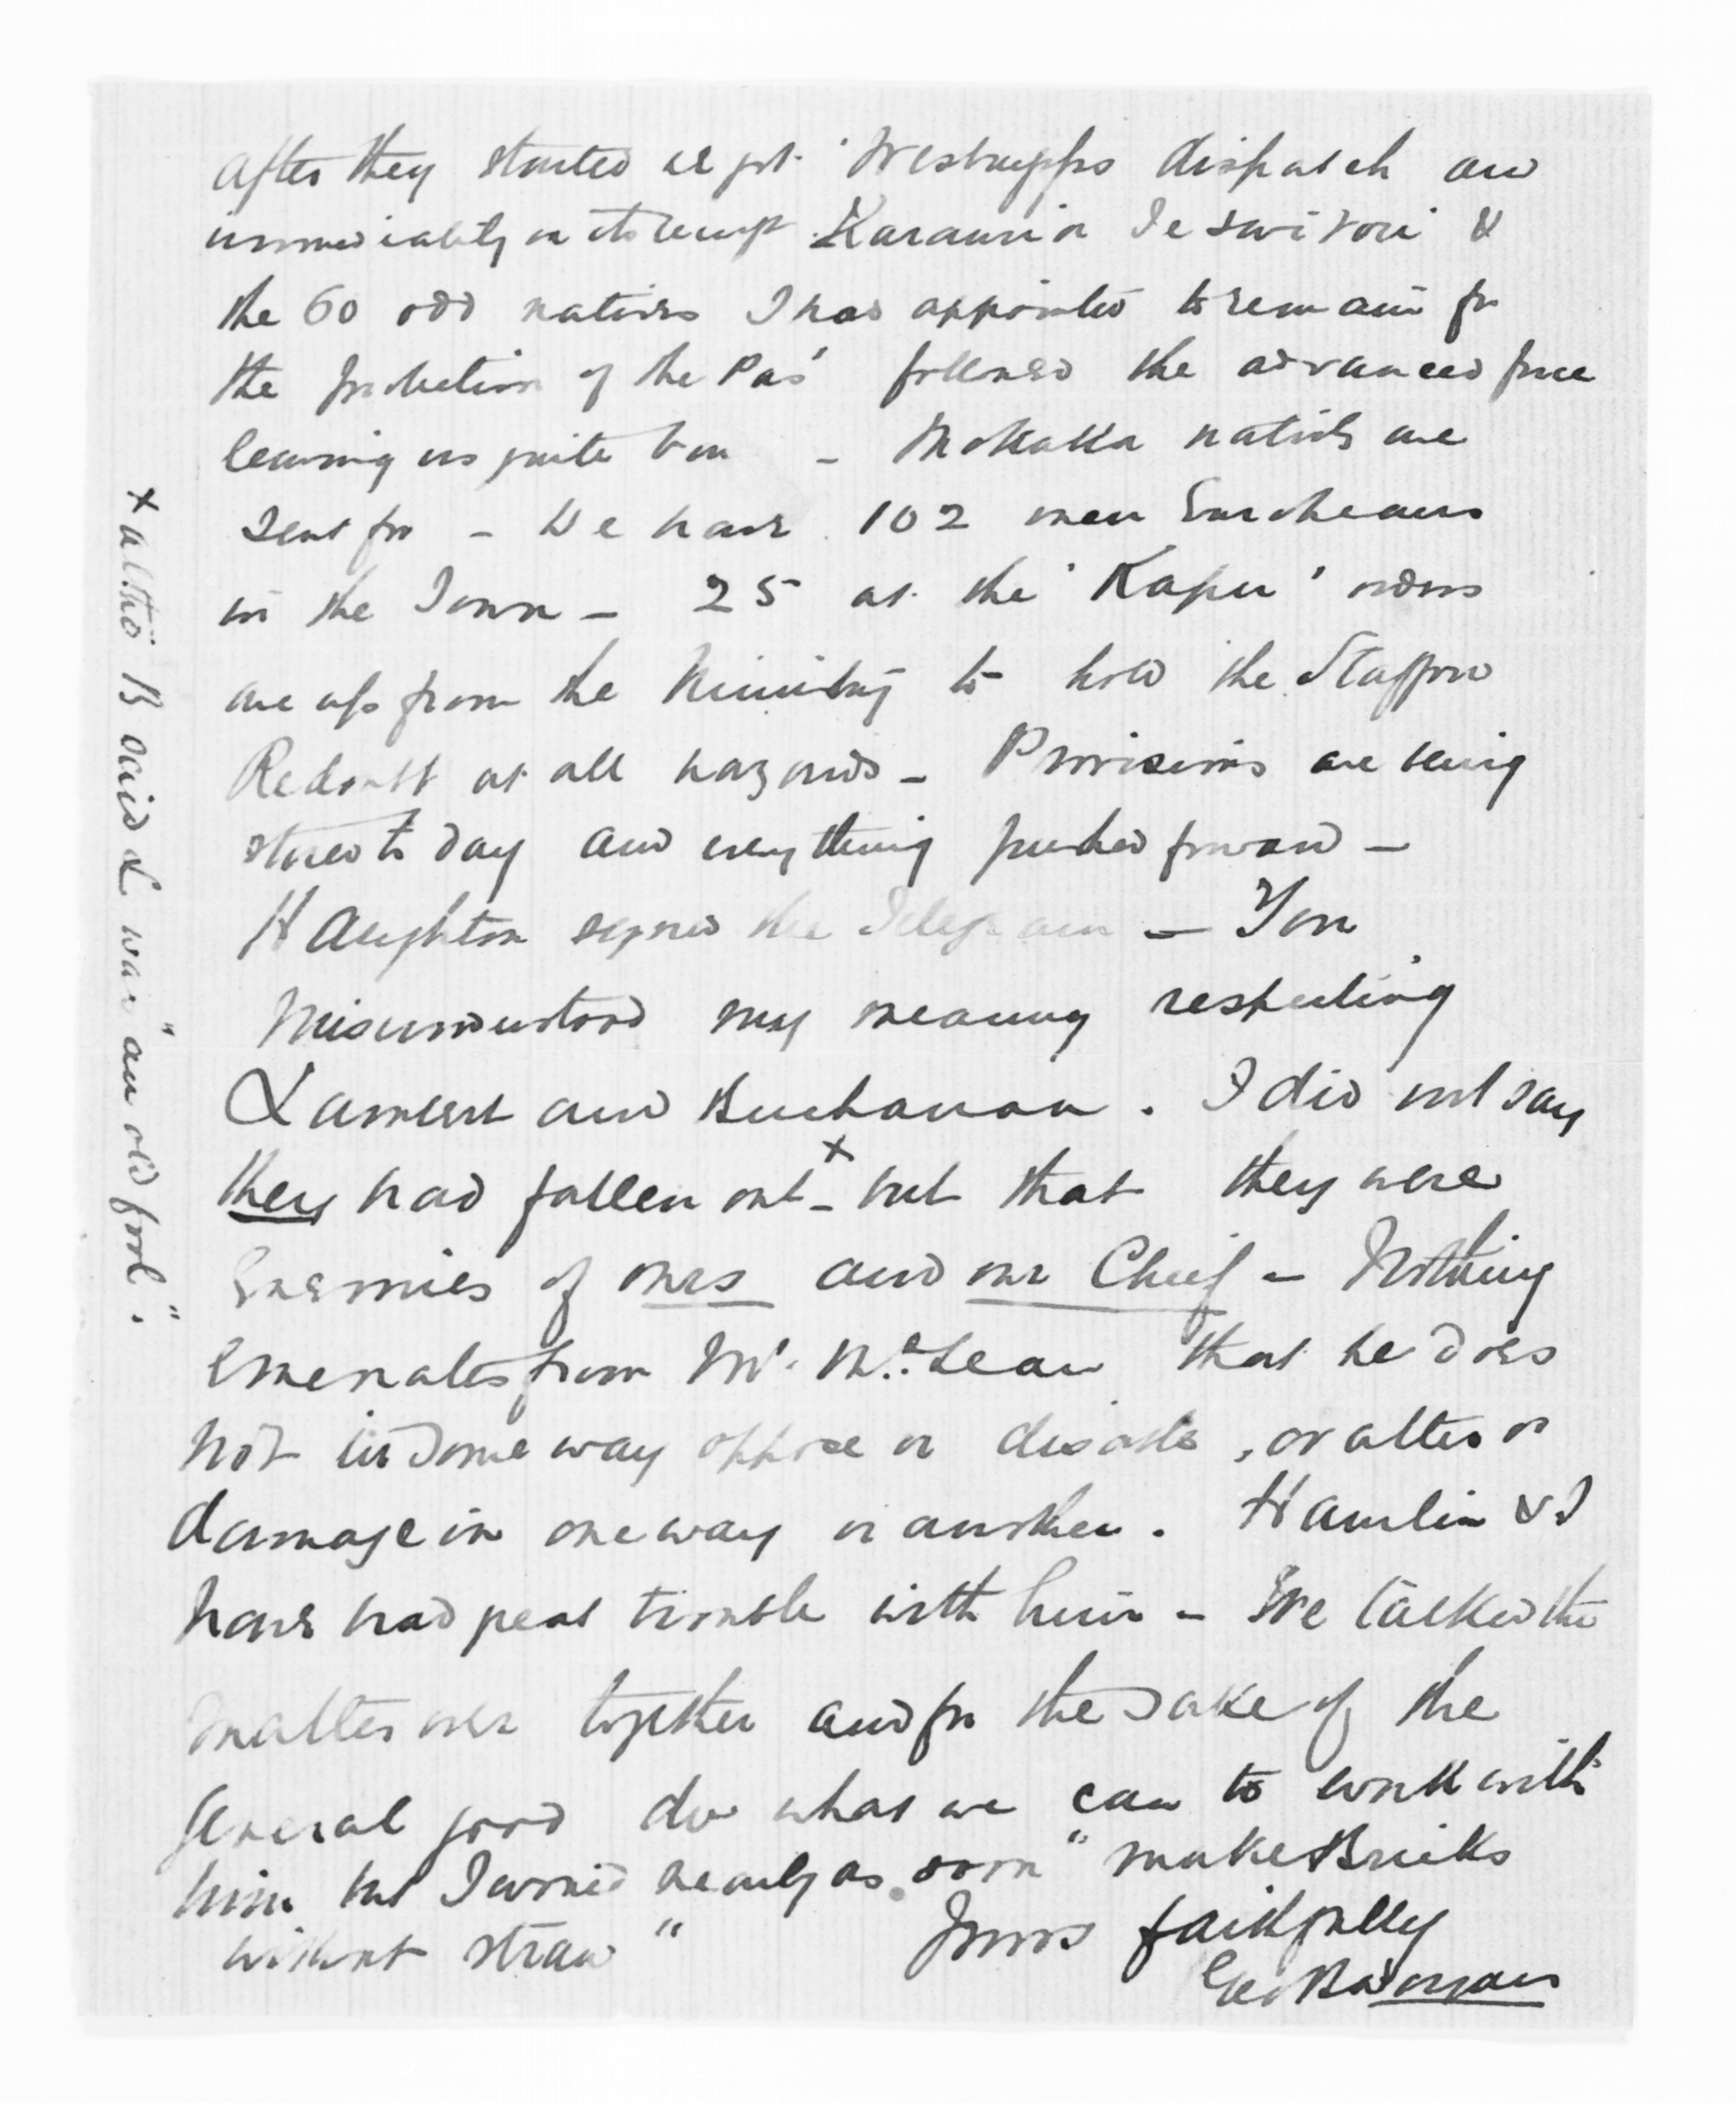 after they started we got 'Westrupps dispatch and
immediately on its receipt Karauria Te Sawitori &
the 60 odd natives I had appointed to remain for
the protection of the Pas' followed the advanced force
leaving us quite bare - Mokaka natives are
sent for - We have 102 men Europeans
in the Town - 25 at the 'Kapu' orders
are up from the Ministry to hold the Stafford
Redoubt at all hazards - Provisions are being
stored to day and everything pushed forward -
Haughton signed the Telegram - You
misunderstood my meaning respecting
Lambert and Buchanan. I did not say
they had fallen out x - but that they were
Enemies of ours and our Chief - Nothing
emenates from Mr. McLean that he does
not in some way oppose or , or alter or
damage in one way or another. Hamlin & I
have had great trouble with him - We talked the
matter over together and for the sake of the
General good do what we can to work with
him but I would nearly as soon "make Bricks
without straw" Yours faithfully
Geo B Worgan
x altho' B said L was "an old fool".